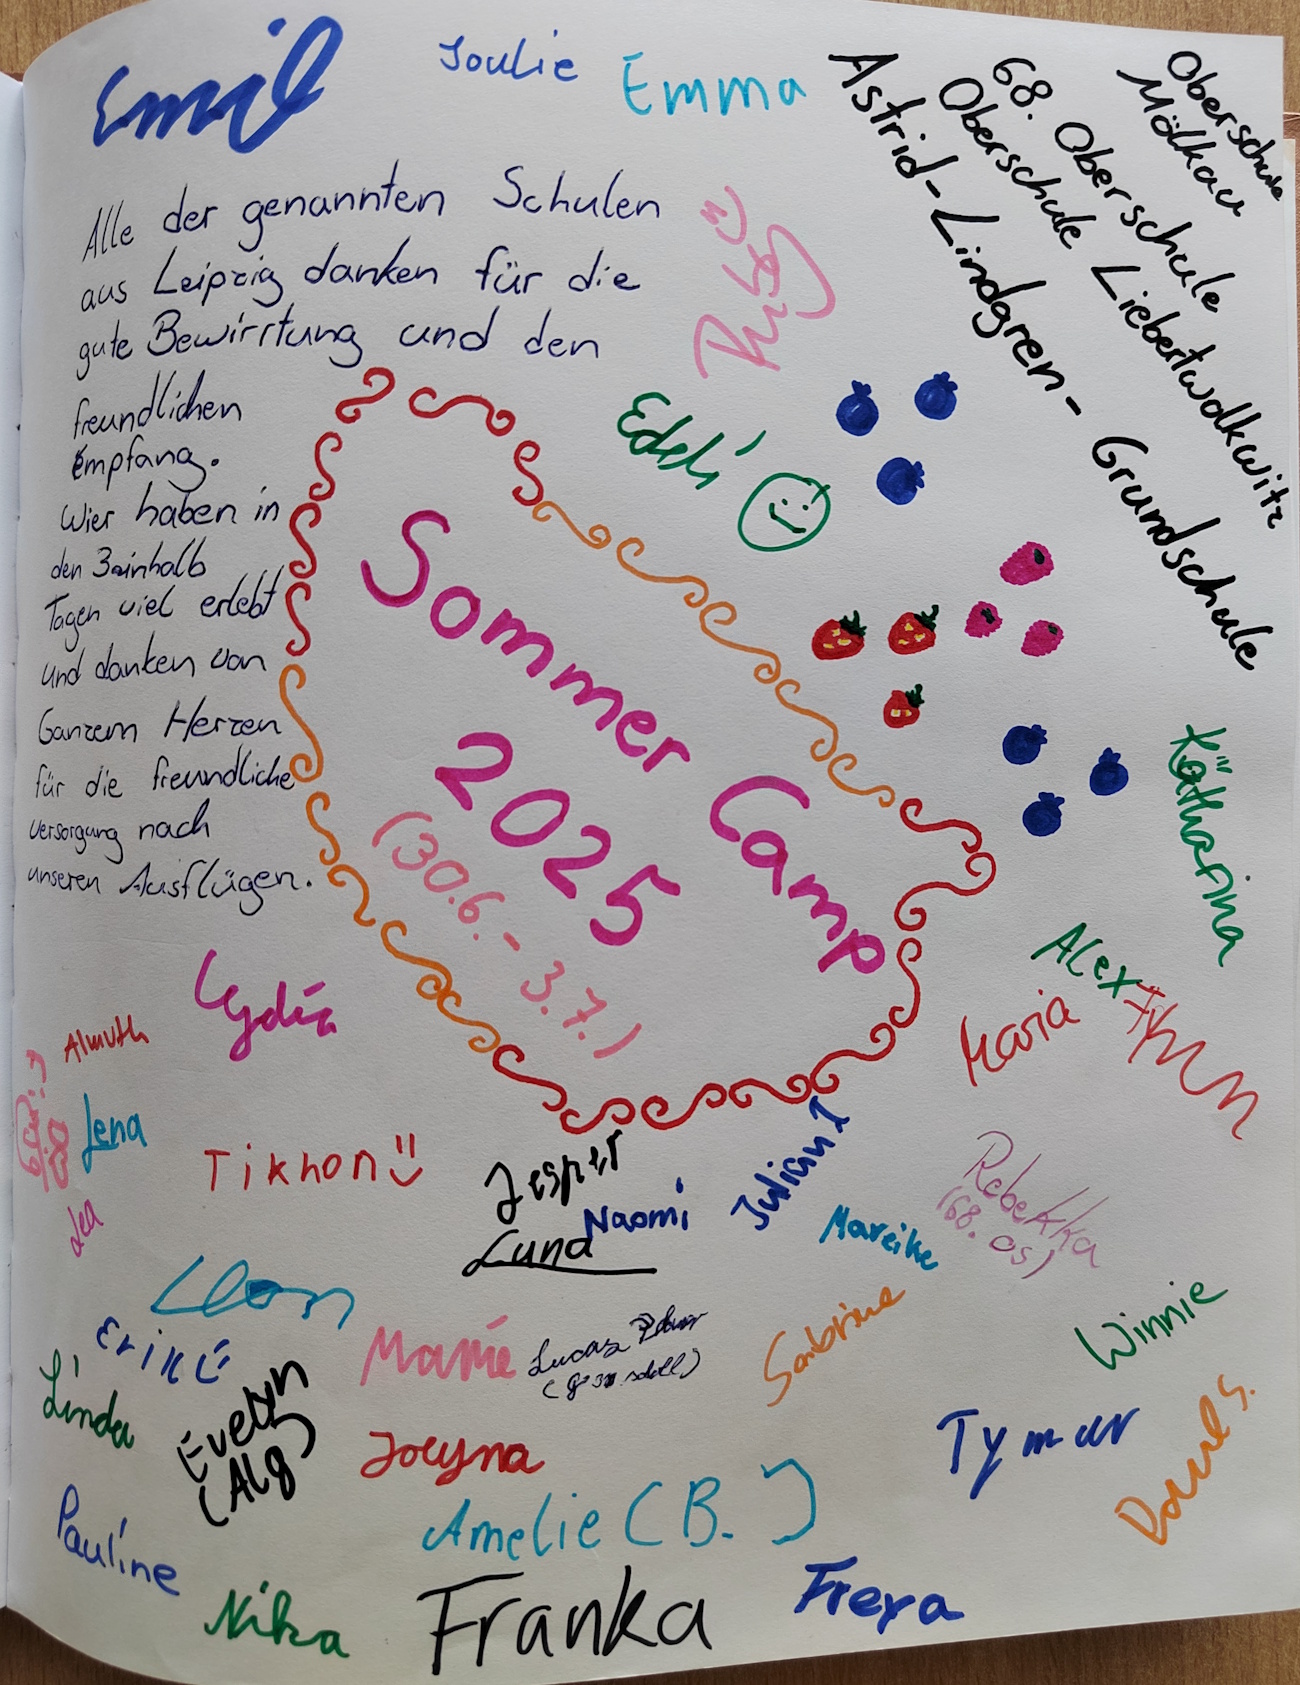 Emil
Joulie
Emma
Oberschule
Mölkau
68. Oberschule
Oberschule Liebertwolkwitz
Astrid-Lindgren-Grundschule
Alle der genannten Schulen
aus Leipzig danken für die
gute Bewirrtung und den
freundlichen
Empfang.
Wier haben in
den 3einhalb
Tagen viel erlebt
und danken von
Ganzem Herzen
für die freundliche
versorgung nach
unseren Ausflügen.
Sommer Camp
2025
(30.6.-3.7.)
Katharina
Alex
Maria
Lydia
Almuth
Lena
Lea
Tikhon
Jesper
Naomi
Luna
Julian T
Mareike
Rebekka
(68. OS)
Leon
Erik
Linda
Evelyn
(Alg)
Marie
Lucas
Sabrine
Winnie
Joeyna
Tymur
Amelie (B.)
Pauline
Nika
Franka
Freya